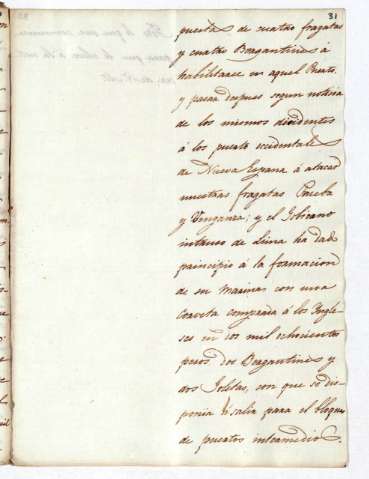 31
puesta de cuatro fragatas
y cuatro Bergantines á
habilitarse en aquel Puerto,
y pasar despues segun noticia
de los mismos disidentes
á los puestos occidentales
de Nueva España á atacar
nuestras fragatas Prueba
y Venganza; y el Gobierno
intruso de Lima ha dado
principio á la formacion
de su Marina con una
Corveta comprada á los Yngle-
ses en dos mil ochocientos
pesos, dos Bergantines y
dos Goletas, con que se dis-
ponia á salir para el bloqueo
de puertos intermedios.